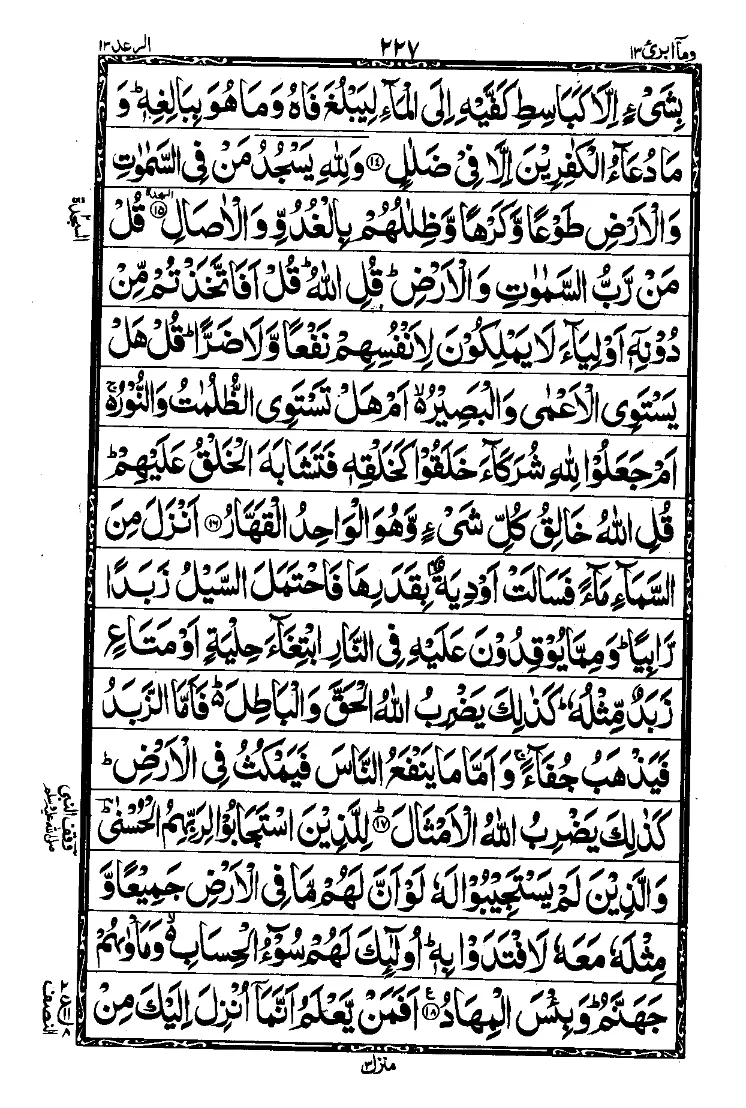 الرعد ١٣ ٢٢٧ ومآ ابرئ ١٣
بِشَىْءٍ اِلَّا كَبَاسِطِ كَفَّيْهِ اِلَى الْمَآءِ لِيَبْلُغَ فَاهُ وَمَا هُوَ بِبَالِغِهٖ ؕ وَ
مَا دُعَآءُ الْكٰفِرِيْنَ اِلَّا فِىْ ضَلٰلٍ ﴿۱۴﴾ وَلِلّٰهِ يَسْجُدُ مَنْ فِى السَّمٰوٰتِ
وَالْاَرْضِ طَوْعًا وَّكَرْهًا وَّظِلٰلُهُمْ بِالْغُدُوِّ وَالْاٰصَالِ ﴿۱۵﴾ السجدة قُلْ
السجدة
مَنْ رَّبُّ السَّمٰوٰتِ وَالْاَرْضِ ؕ قُلِ اللّٰهُ ؕ قُلْ اَفَاتَّخَذْتُمْ مِّنْ
دُوْنِهٖۤ اَوْلِيَآءَ لَا يَمْلِكُوْنَ لِاَنْفُسِهِمْ نَفْعًا وَّلَا ضَرًّا ؕ قُلْ هَلْ
يَسْتَوِى الْاَعْمٰى وَالْبَصِيْرُ ۙ اَمْ هَلْ تَسْتَوِى الظُّلُمٰتُ وَالنُّوْرُ ۚ
اَمْ جَعَلُوْا لِلّٰهِ شُرَكَآءَ خَلَقُوْا كَخَلْقِهٖ فَتَشَابَهَ الْخَلْقُ عَلَيْهِمْ ؕ
قُلِ اللّٰهُ خَالِقُ كُلِّ شَىْءٍ وَّهُوَ الْوَاحِدُ الْقَهَّارُ ﴿۱۶﴾ اَنْزَلَ مِنَ
السَّمَآءِ مَآءً فَسَالَتْ اَوْدِيَةٌۢ بِقَدَرِهَا فَاحْتَمَلَ السَّيْلُ زَبَدًا
رَّابِيًا ؕ وَمِمَّا يُوْقِدُوْنَ عَلَيْهِ فِى النَّارِ ابْتِغَآءَ حِلْيَةٍ اَوْ مَتَاعٍ
زَبَدٌ مِّثْلُهٗ ؕ كَذٰلِكَ يَضْرِبُ اللّٰهُ الْحَقَّ وَالْبَاطِلَ ؕ فَاَمَّا الزَّبَدُ
فَيَذْهَبُ جُفَآءً ۚ وَاَمَّا مَا يَنْفَعُ النَّاسَ فَيَمْكُثُ فِى الْاَرْضِ ؕ
كَذٰلِكَ يَضْرِبُ اللّٰهُ الْاَمْثَالَ ﴿۱۷﴾ ؕ لِلَّذِيْنَ اسْتَجَابُوْا لِرَبِّهِمُ الْحُسْنٰى ؔؕ
وقف النبي صلى الله عليه وسلم
وَالَّذِيْنَ لَمْ يَسْتَجِيْبُوْا لَهٗ لَوْ اَنَّ لَهُمْ مَّا فِى الْاَرْضِ جَمِيْعًا وَّ
مِثْلَهٗ مَعَهٗ لَافْتَدَوْا بِهٖ ؕ اُولٰٓئِكَ لَهُمْ سُوْٓءُ الْحِسَابِ ۙ وَمَاْوٰىهُمْ
جَهَنَّمُ ؕ وَبِئْسَ الْمِهَادُ ﴿۱۸﴾ ع اَفَمَنْ يَّعْلَمُ اَنَّمَاۤ اُنْزِلَ اِلَيْكَ مِنْ
النصف
منزل ٣